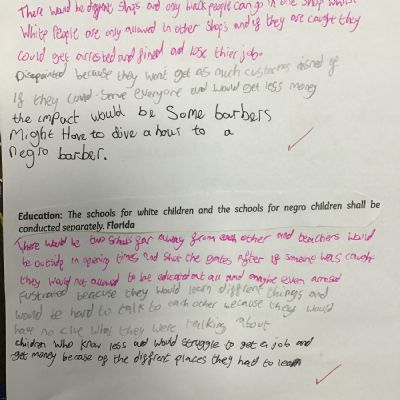 There would be diffrent shops and only black people can go in one shop whilst
White People are only allowed in other shops and if they are caught they
could get arrested and fined and lose thier job.
Disapointed because they wont get as much customers insted of
If they could serve everyone and would get less money
the impact would be Some barbers
Might Have to drive a hour to a
negro barber.
Education: The schools for white children and the schools for negro children shall be
conducted separately. Florida
There would be two schools far away from each other and teachers would
be outside in opening times and shut the gates after if someone was caught
they would not allowed to be educated at all and maybe even arrested
fustrated because they would learn different things and
would be hard to talk to each other because they would
have no clue what they were talking about
children who know less and would struggle to get a job and
get money becase of the diffrent places they had to learn